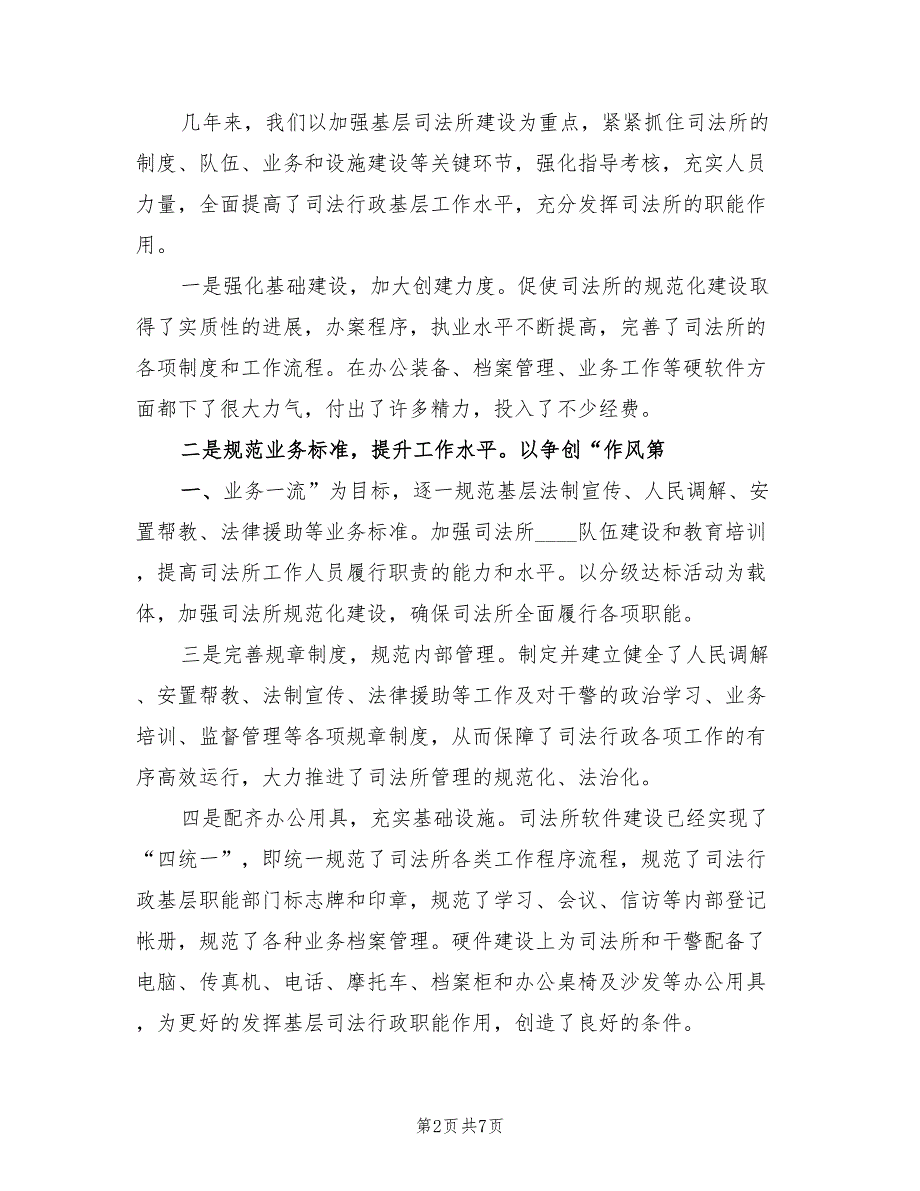 几年来，我们以加强基层司法所建设为重点，紧紧抓住司法所的
制度、队伍、业务和设施建设等关键环节，强化指导考核，充实人员
力量，全面提高了司法行政基层工作水平，充分发挥司法所的职能作
用。
一是强化基础建设，加大创建力度。促使司法所的规范化建设取
得了实质性的进展，办案程序，执业水平不断提高，完善了司法所的
各项制度和工作流程。在办公装备、档案管理、业务工作等硬软件方
面都下了很大力气，付出了许多精力，投入了不少经费。
二是规范业务标准，提升工作水平。以争创“作风第
一、业务一流”为目标，逐一规范基层法制宣传、人民调解、安
置帮教、法律援助等业务标准。加强司法所____队伍建设和教育培训
，提高司法所工作人员履行职责的能力和水平。以分级达标活动为载
体，加强司法所规范化建设，确保司法所全面履行各项职能。
三是完善规章制度，规范内部管理。制定并建立健全了人民调解
、安置帮教、法制宣传、法律援助等工作及对干警的政治学习、业务
培训、监督管理等各项规章制度，从而保障了司法行政各项工作的有
序高效运行，大力推进了司法所管理的规范化、法治化。
四是配齐办公用具，充实基础设施。司法所软件建设已经实现了
“四统一”，即统一规范了司法所各类工作程序流程，规范了司法行
政基层职能部门标志牌和印章，规范了学习、会议、信访等内部登记
帐册，规范了各种业务档案管理。硬件建设上为司法所和干警配备了
电脑、传真机、电话、摩托车、档案柜和办公桌椅及沙发等办公用具
，为更好的发挥基层司法行政职能作用，创造了良好的条件。
第2页共7页